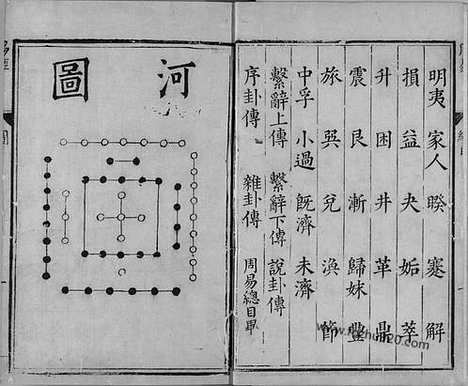 明夷 家人 睽 蹇 解
損 益 夬 姤 萃
升 困 井 革 鼎
震 艮 漸 歸妹 豐
旅 巽 兌 渙 節
中孚 小過 既濟 未濟
繫辭上傳 繫辭下傳 說卦傳
序卦傳 雜卦傳 周易總目畢
河圖